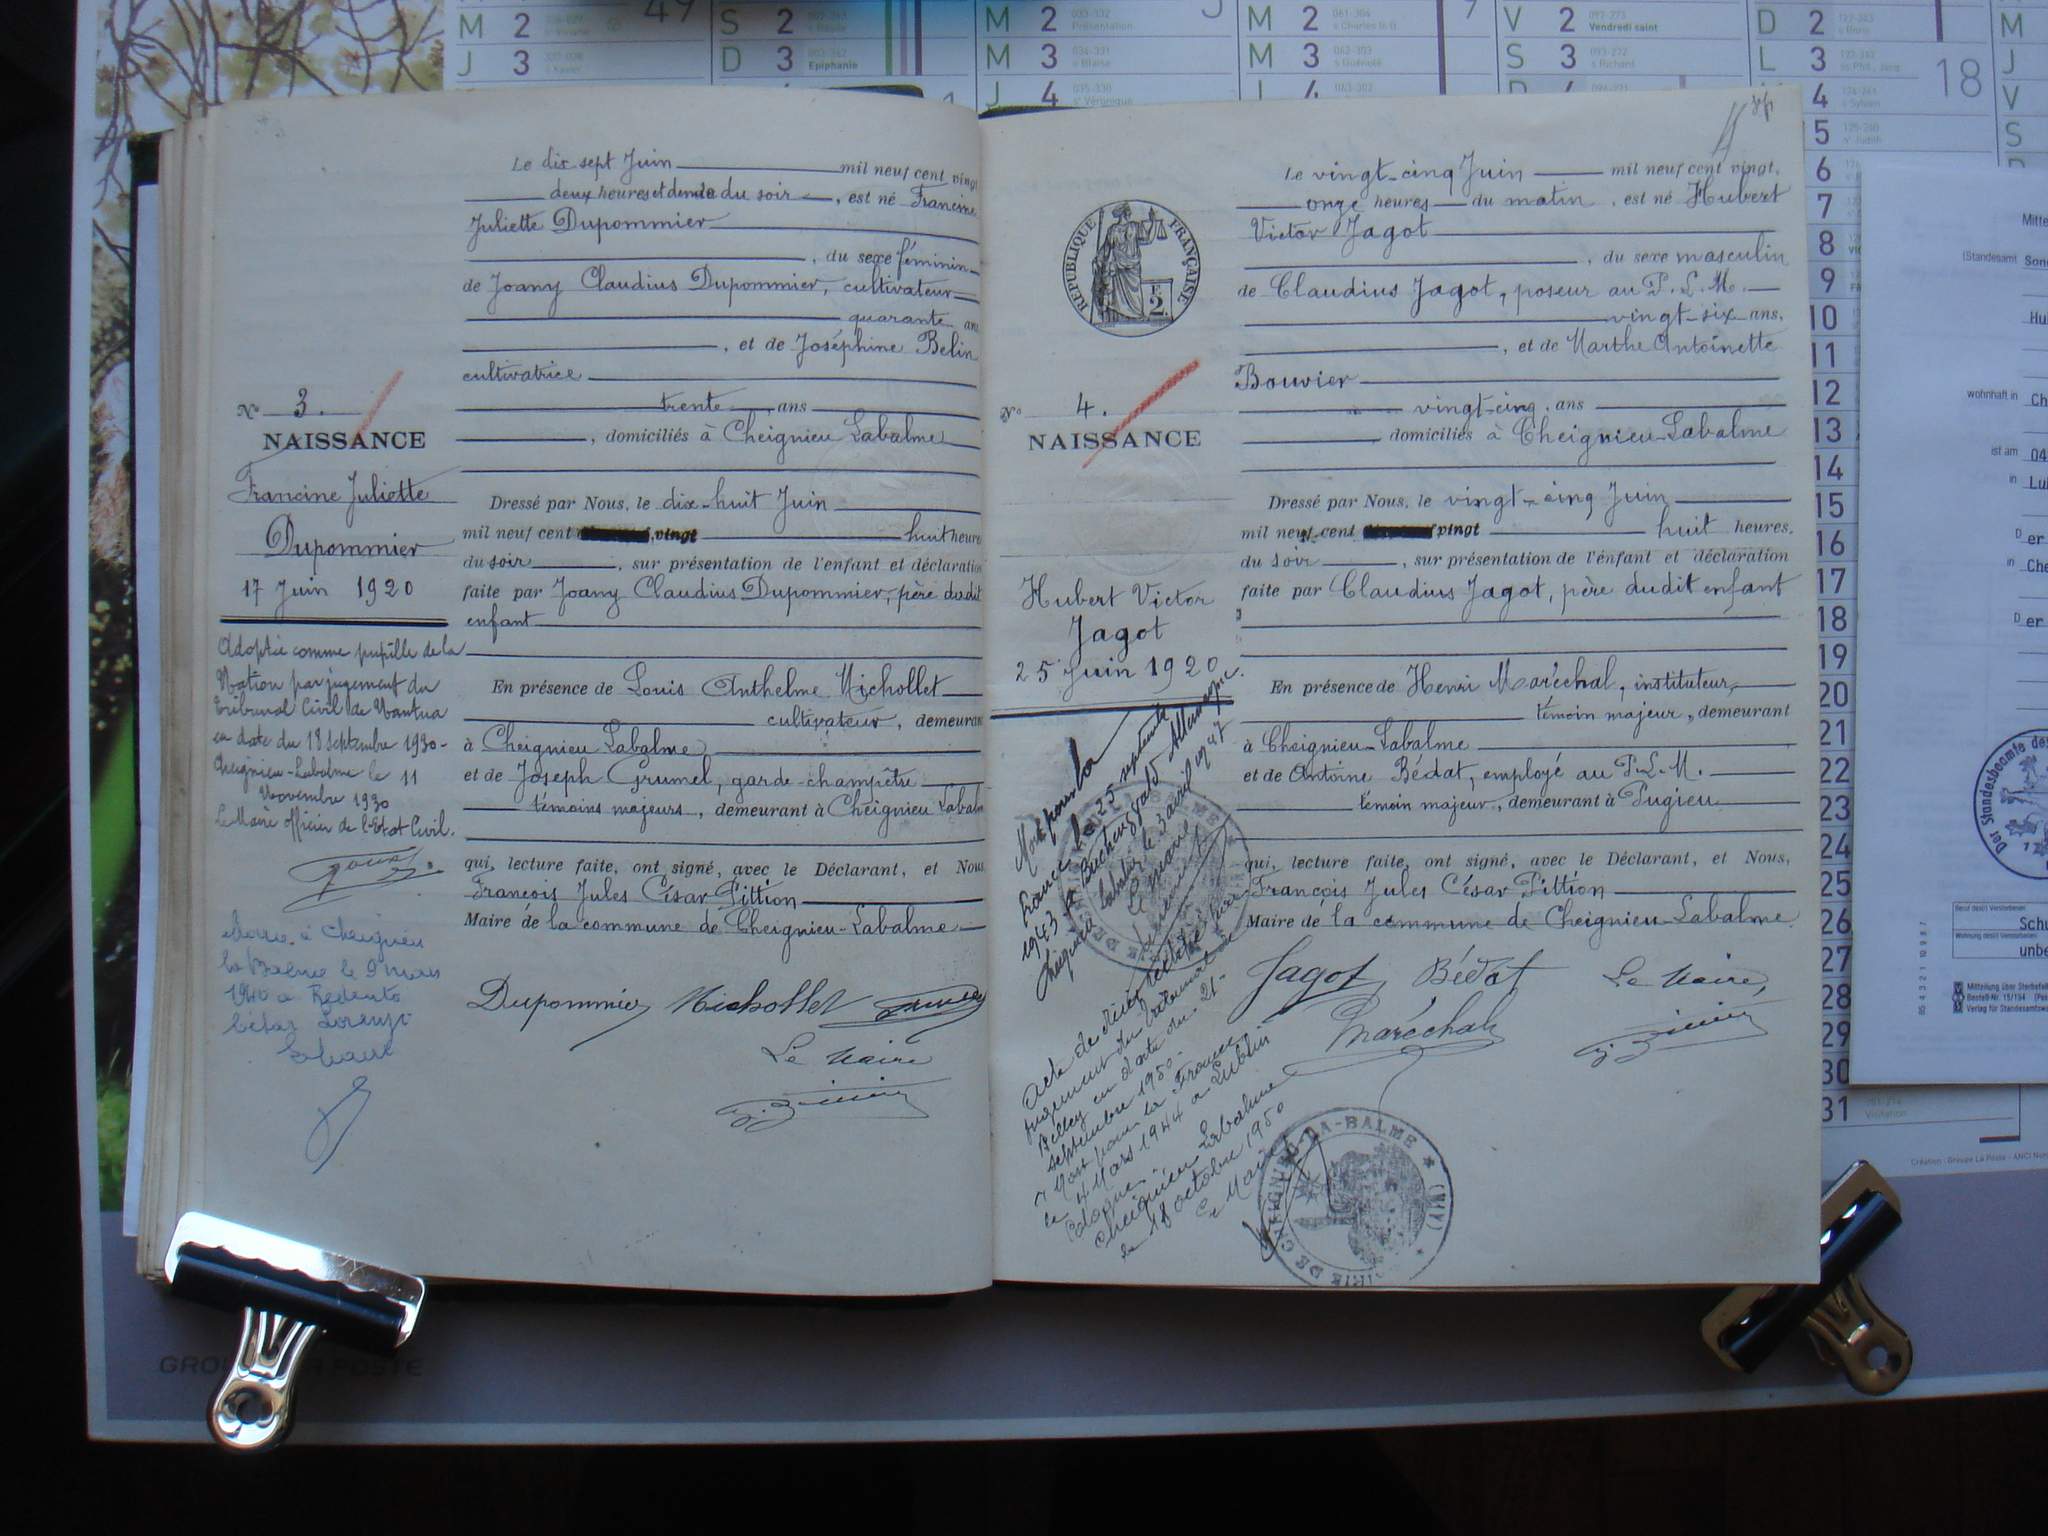 Le dix sept Juin mil neuf cent vingt
deux heures et demie du soir, est né Francine
Juliette Dupommier
, du sexe féminin
de Joany Claudius Dupommier, cultivateur
quarante ans
, et de Joséphine Belin
cultivatrice
trente ans
, domiciliés à Cheignieu Labalme
Dressé par Nous, le dix-huit Juin
mil neuf cent vingt huit heures
du soir, sur présentation de l'enfant et déclaration
faite par Joany Claudius Dupommier, père dudit
enfant
En présence de Louis Anthelme Michollet
cultivateur, demeurant
à Cheignieu Labalme
et de Joseph Grumel, garde-champêtre
témoins majeurs, demeurant à Cheignieu Labalme
qui, lecture faite, ont signé, avec le Déclarant, et Nous
François Jules César Pittion
Maire de la commune de Cheignieu-Labalme
Dupommier Michollet
Le Maire
N° 3.
NAISSANCE
Francine Juliette
Dupommier
17 Juin 1920
Adoptée comme pupille de la
Nation par jugement du
Tribunal Civil de Nantua
en date du 18 septembre 1930-
Cheignieu-Labalme le 11
Novembre 1930
Le Maire officier de l'Etat Civil.
Mariée à Cheignieu
la Balme le 9 mars
1940 à
Lorenzi
Le vingt-cinq Juin mil neuf cent vingt,
onze heures du matin, est né Hubert
Victor Jagot
, du sexe masculin
de Claudius Jagot, poseur au P.L.M.
vingt-six ans,
, et de Marthe Antoinette
Bouvier
vingt-cinq ans
domiciliés à Cheignieu-Labalme
Dressé par Nous, le vingt-cinq Juin
mil neuf cent vingt huit heures,
du soir, sur présentation de l'enfant et déclaration
faite par Claudius Jagot, père dudit enfant
En présence de Henri Maréchal, instituteur,
témoin majeur, demeurant
à Cheignieu-Labalme
et de Antoine Bédat, employé au P.L.M.
témoin majeur, demeurant à Pugieu
qui, lecture faite, ont signé, avec le Déclarant, et Nous,
François Jules César Pittion
Maire de la commune de Cheignieu-Labalme
Jagot Bédat Le Maire,
Maréchal
RÉPUBLIQUE FRANÇAISE
F. 2.
N° 4.
NAISSANCE
Hubert Victor
Jagot
25 Juin 1920
Mort pour la
France le 25 septembre
1943 à Buchenwald Allemagne
Cheignieu Labalme le 3 avril 1947
Le maire
Acte de décès rectifié par
jugement du tribunal de
Belley en date du 21
septembre 1950.
"Mort pour la France
le 4 Mars 1944 à Lublin
Pologne".
Cheignieu Labalme
le 18 octobre 1950
Le Maire
MAIRIE DE CHEIGNIEU-LA-BALME (AIN)
GROUPE LA POSTE
Création : Groupe La Poste
Vendredi saint
Epiphanie
Présentation
Visitation
18
M 2
J 3
S 2
D 3
M 2
M 3
J 4
M 2
M 3
J 4
V 2
S 3
D 2
L 3
4
5
6
7
8
9
10
11
12
13
14
15
16
17
18
19
20
21
22
23
24
25
26
27
28
29
30
31
(Standesamt
wohnhaft in
ist am 04
in
Der
in
Der
Der Standesbeamte des
Schu
unbe
Mitteilung über Sterbefall
Verlag für Standesamtswesen